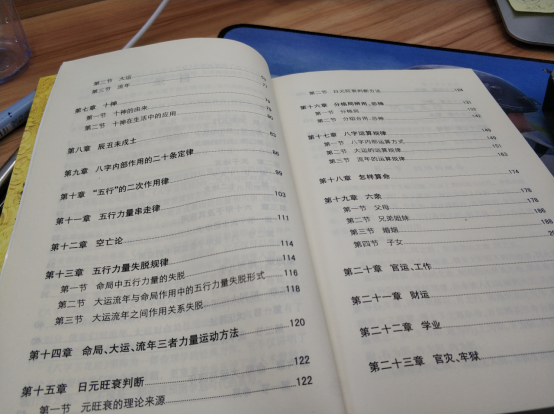 第二节 大运
第三节 流年 77
第七章 十神
第一节 十神的由来
第二节 十神在生活中的应用
第八章 辰丑未戌土
第九章 八字内部作用的二十条定律 86
第十章 “五行”的二次作用律 99
第十一章 五行力量串走律 103
第十二章 空亡论 111
第十三章 五行力量失脱规律 114
第一节 命局中五行力量的失脱 114
第二节 大运流年与命局作用中的五行力量失脱形式 116
第三节 大运流年之间作用关系失脱 118
第十四章 命局、大运、流年三者力量运动方法 120
第十五章 日元旺衰判断 122
第一节 元旺衰的理论来源 122
第二节 日元旺衰判断方法
第十六章 分格局明用、忌神
第一节 分格局
第二节 分组合用、忌神
第十七章 八字运算规律 149
第一节 八字内部运算方式 149
第二节 大运的运算规律 151
第三节 流年的运算规律 163
第十八章 怎样算命 174
第十九章 六亲 178
第一节 父母 178
第二节 兄弟姐妹 186
第三节 婚姻 188
第四节 子女
第二十章 官运、工作
第二十一章 财运
第二十二章 学业
第二十三章 官灾、牢狱